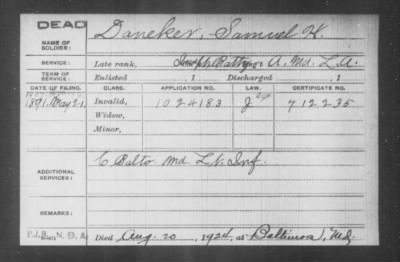 DEAD
NAME OF SOLDIER: Daneker, Samuel H.
SERVICE: Late rank, A, Md. L. A.
TERM OF SERVICE: Enlisted , 1 Discharged , 1
DATE OF FILING. CLASS. APPLICATION NO. LAW. CERTIFICATE NO.
1891, May 21, Invalid, 1024183 712235
Widow,
Minor,
ADDITIONAL SERVICES: C Balto. Md. Lt. Inf.
REMARKS:
Died Aug. 20, 1924, at Baltimore, Md.